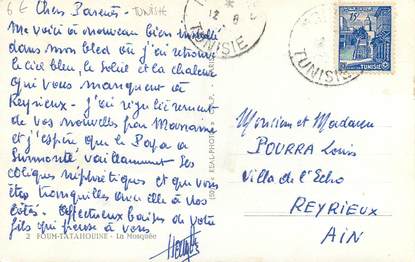 6 E
TUNISIE
Chers Parents
Me voici à nouveau bien installé
dans mon bled où j'ai retrouvé
le ciel bleu, le soleil et la chaleur
qui vous manquent à
Reyrieux - j'ai régulièrement
de vos nouvelles par Marraine
et j'espère que le Papa a
surmonté vaillamment ses
coliques néphrétiques et que vous
êtes tranquilles de
côtés. Affectueux baisers de votre
fils qui pense à vous
2 FOUM-TATAHOUINE - La Mosquée
"REAL-PHOTO"
12
TUNISIE
15
TUNISIE
TUNISIE
Monsieur et Madame
POURRA Louis
Villa de l'Echo
REYRIEUX
AIN